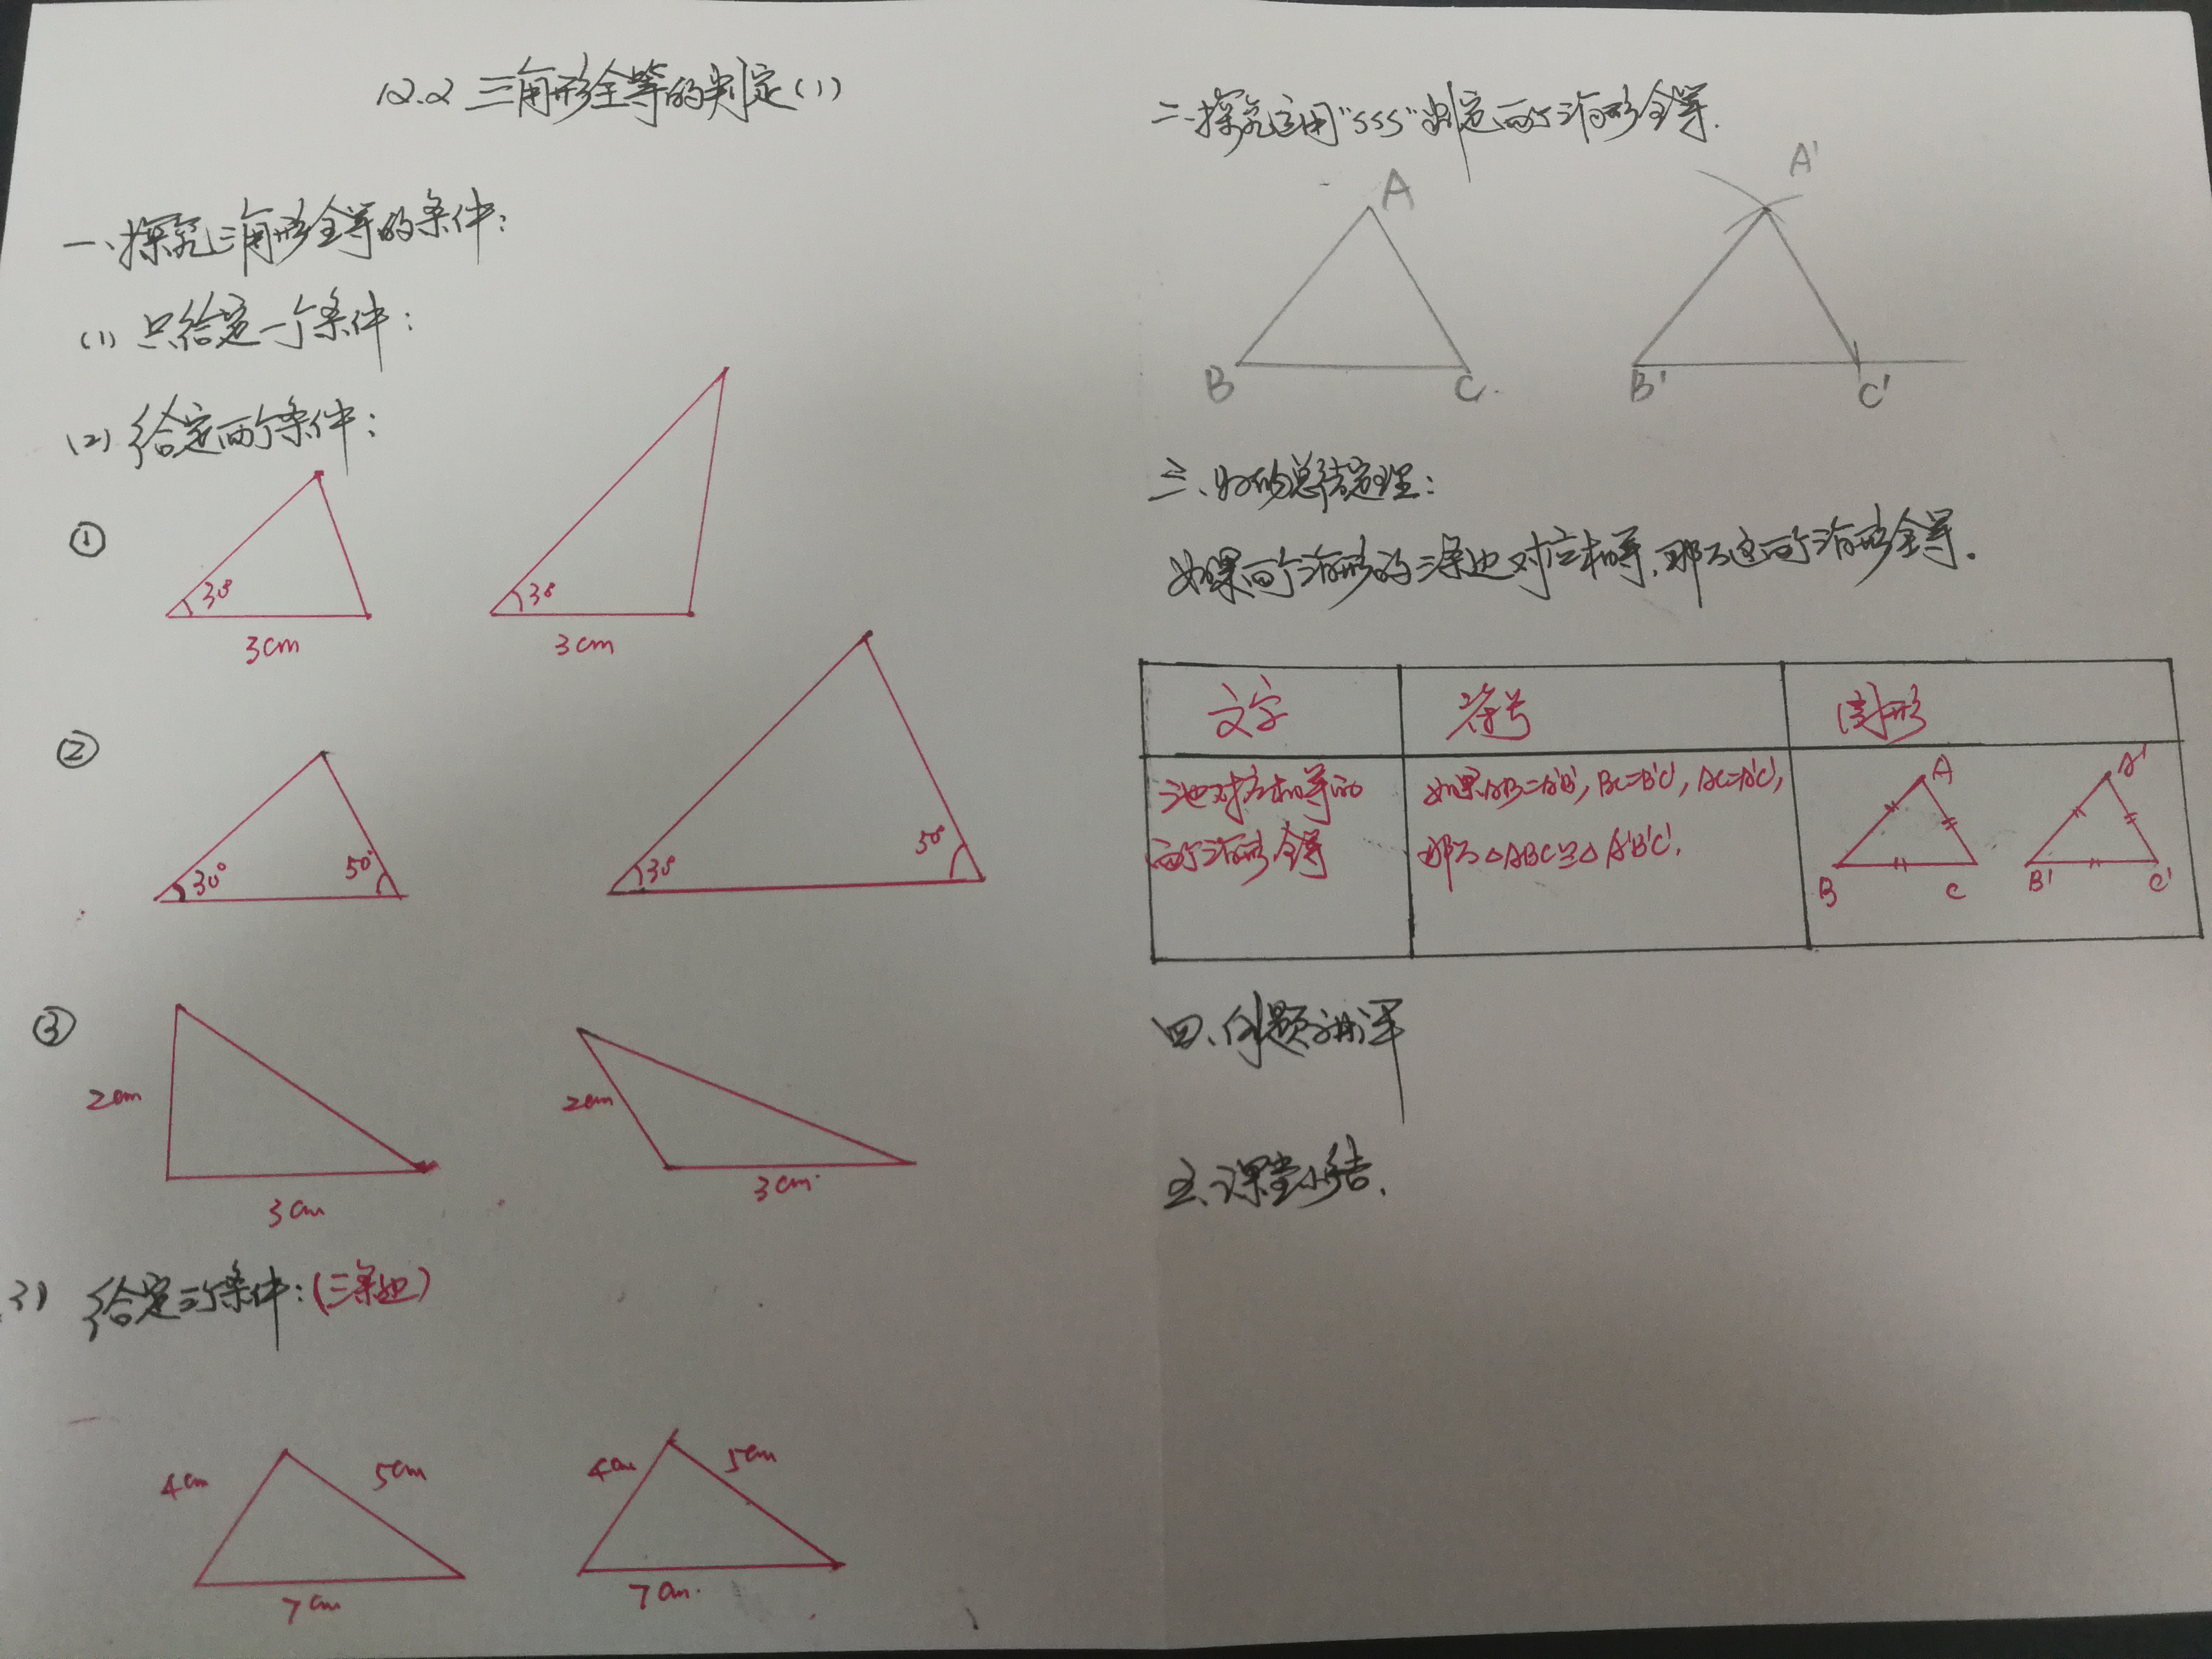 12.2 三角形全等的判定(1)
一、探究三角形全等的条件:
(1) 只给定一个条件:
(2) 给定两个条件:
①
30°
3cm
30°
3cm
②
30°
50°
30°
50°
③
2cm
3cm
2cm
3cm
3) 给定三个条件:(三条边)
4cm
5cm
7cm
4cm
5cm
7cm
二、探究运用"SSS"判定两个三角形全等.
A
B
C
A'
B'
C'
三、归纳总结定理:
如果两个三角形的三条边对应相等,那么这两个三角形全等.
文字
符号
图形
三边对应相等的
两个三角形全等
如果AB=A'B', BC=B'C', AC=A'C',
那么△ABC≌△A'B'C'.
A
B
C
A'
B'
C'
四、例题讲评
五、课堂小结.